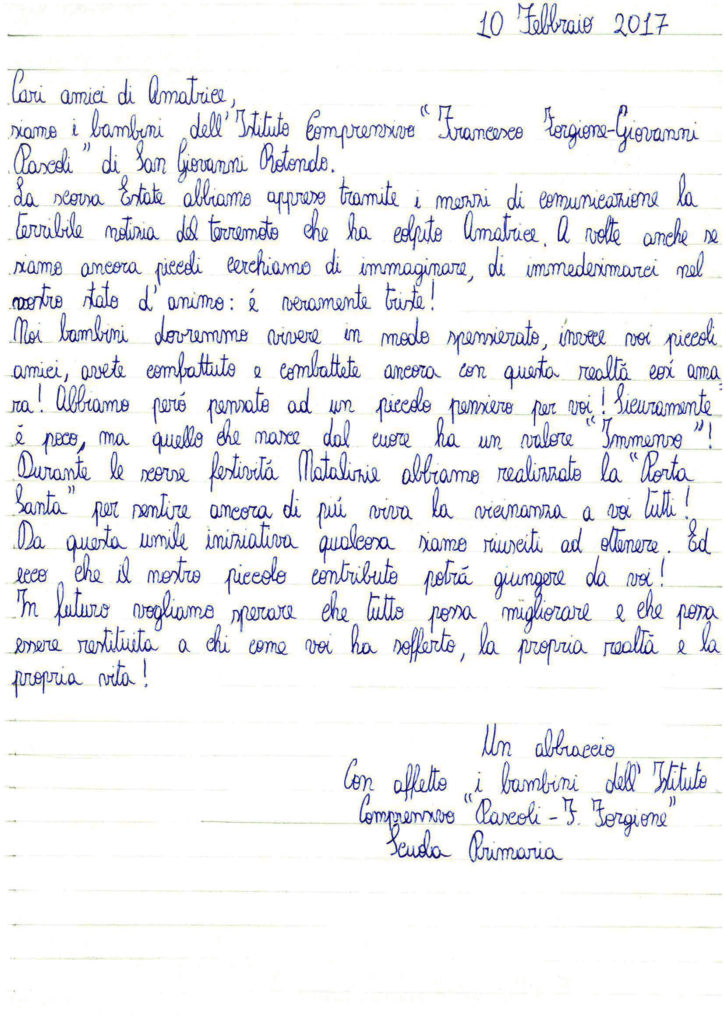 10 Febbraio 2017
Cari amici di Amatrice,
siamo i bambini dell'Istituto Comprensivo "Francesco Forgione-Giovanni
Pascoli" di San Giovanni Rotondo.
La scorsa Estate abbiamo appreso tramite i mezzi di comunicazione la
terribile notizia del terremoto che ha colpito Amatrice. A volte anche se
siamo ancora piccoli cerchiamo di immaginare, di immedesimarci nel
vostro stato d'animo: é veramente triste!
Noi bambini dovremmo vivere in modo spensierato, invece voi piccoli
amici, avete combattuto e combattete ancora con questa realtà cosí ama
ra! Abbiamo peró pensato ad un piccolo pensiero per voi! Sicuramente
é poco, ma quello che nasce dal cuore ha un valore "Immenso"!
Durante le scorse festivitá Natalizie abbiamo realizzato la "Porta
Santa" per sentire ancora di piú viva la vicinanza a voi tutti!
Da questa umile iniziativa qualcosa siamo riusciti ad ottenere. Ed
ecco che il nostro piccolo contributo potrá giungere da voi!
In futuro vogliamo sperare che tutto possa migliorare e che possa
essere restituita a chi come voi ha sofferto, la propria realtà e la
propria vita!
Un abbraccio
Con affetto i bambini dell'Istituto
Comprensivo "Pascoli - F. Forgione"
Scuola Primaria